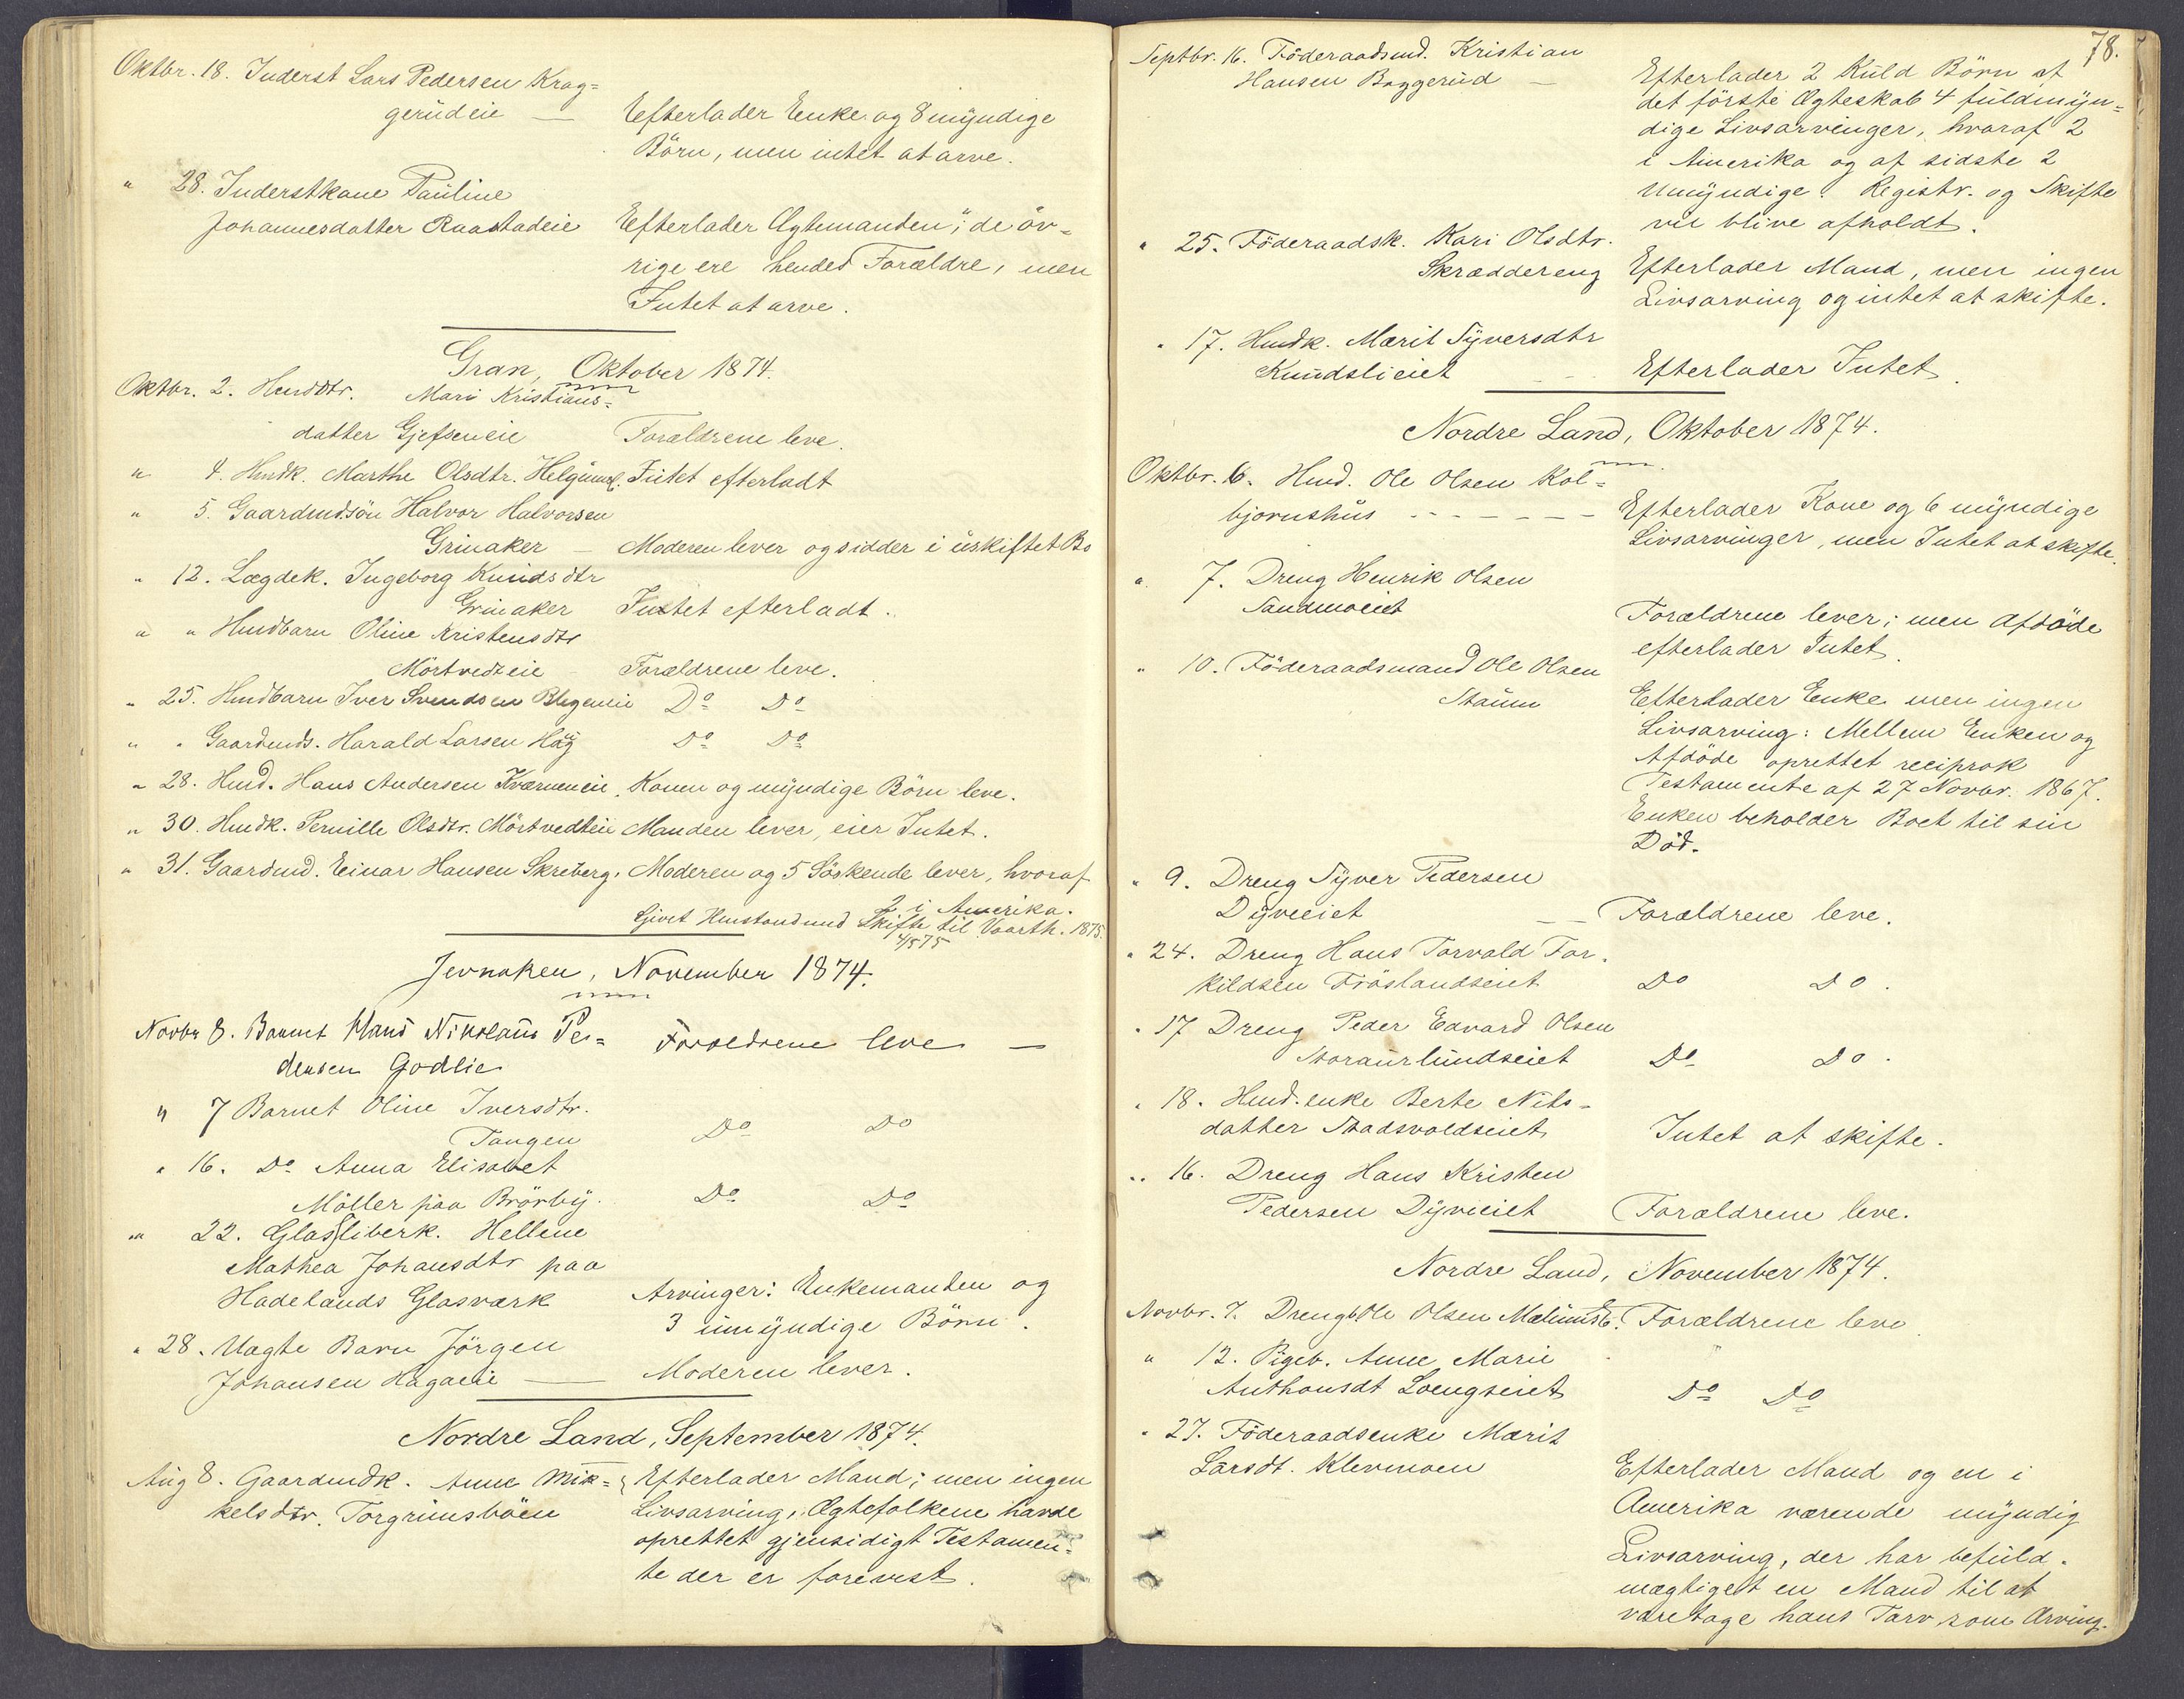 Oktbr. 18. Inderst Lars Pedersen Krag=
gerüdeie — Efterlader Enke og 8 myndige
Börn, men intet at arve.
" 28. Inderstkone Pauline
Johannesdatter Raastadeie Efterlader Ægtemanden; de öv=
rige ere hendes Forældre, men
Intet at arve.
Gran, Oktober 1874.
Oktbr. 2. Husdtr. Mari Kristians=
datter Gjefseneie Forældrene leve.
" 4. Husmdk. Marthe Olsdtr. Helgüml. Intet efterladt
" 5. Gaardmdsön Halvor Halvorsen
Grinaker — Moderen lever og sidder i üskiftet Bo
" 12. Lægdek. Ingeborg Knüdsdtr
Grinaker Intet efterladt.
" " Hmdbarn Oline Kristensdtr
Mörtvedteie Forældrene leve.
" 25. Hmdbarn Iver Svendsen Blegeneie Do Do
" " Gaardmds. Harald Larsen Hög Do Do
" 28. Hmd. Hans Andersen Kværneneie, Konen og myndige Börn leve.
" 30. Hmdk. Pernille Olsdtr. Mörtvedteie Manden lever, eier Intet.
" 31. Gaardmd. Einar Hansen Skreberg. Moderen og 5 Söskende lever, hvoraf
2 i Amerika.
Givet Henstand med Skifte til Vaarth. 1875.
4/5 75
Jevnaken, November 1874.
Novbr 8. Barnet Hans Nikolaüs Pe=
dersen Godlie Forældrene leve —
" 7 Barnet Oline Iversdtr.
Tangen Do Do
" 16. Do Anna Elisabet
Möller paa Brörby. Do Do
" 22. Glassliberk. Hellene
Mathea Johansdtr paa
Hadelands Glasværk Arvinger: Enkemanden og
3 ümyndige Börn.
" 28. Uægte Barn Jörgen
Johansen Hagaeie — Moderen lever.
Nordre Land, September 1874.
Aüg 8. Gaardmdk. Anne Mik= Efterlader Mand; men ingen
kelsdtr. Torgrimsböen Livsarving, Ægtefolkene havde
oprettet gjensidigt Testamen=
te der er forevist.
78.
Septbr. 16. Föderaadsmd. Kristian
Hansen Baggerüd — Efterlader 2 Küld Börn af
det förste Ægteskab 4 füldmyn=
dige Livsarvinger, hvoraf 2
i Amerika og af sidste 2
Umyndige. Registr. og Skifte
vil blive afholdt.
" 25. Föderaadsk. Kari Olsdtr.
Skræddereng Efterlader Mand, men ingen
Livsarving og intet at skifte.
" 17. Hmdk. Marit Syversdtr
Knüdslieiet Efterlader Intet.
Nordre Land, Oktober 1874.
Oktbr. 6. Hmd. Ole Olsen Kol=
bjornshüs - - - - Efterlader Kone og 6 myndige
Livsarvinger, men Intet at skifte.
" 7. Dreng Henrik Olsen
Sandmoeiet Forældrene lever; men Afdöde
efterlader Intet.
" 10. Föderaadsmand Ole Olsen
Efterlader Enke men ingen
Livsarving: Mellem Enken og
Afdöde oprettet reciprok
Testamente af 27 Novbr. 1867.
Enken beholder Boet til sin
Död.
" 9. Dreng Syver Pedersen
Dyveeiet — Forældrene leve.
" 24. Dreng Hans Torvald Tor=
kildsen Fröslandseiet Do Do.
" 17 Dreng Peder Edvard Olsen
Storaürlündseiet Do Do.
" 18. Hmd.enke Berte Nils=
datter Stadsvoldseiet Intet at skifte.
" 16. Dreng Hans Kristen
Pedersen Dyveeiet Forældrene leve.
Nordre Land, November 1874.
Novbr. 7. Drengb. Ole Olsen Forældrene leve
" 12. Pigeb. Anne Marie
Anthonsdt Loengseiet Do Do
" 27. Föderaadsenke Marit
Larsdt. Klevmoen Efterlader Mand og en i
Amerika værende myndig
Livsarving, der har befüld=
mægtiget en Mand til at
varetage hans Tarv som Arving.